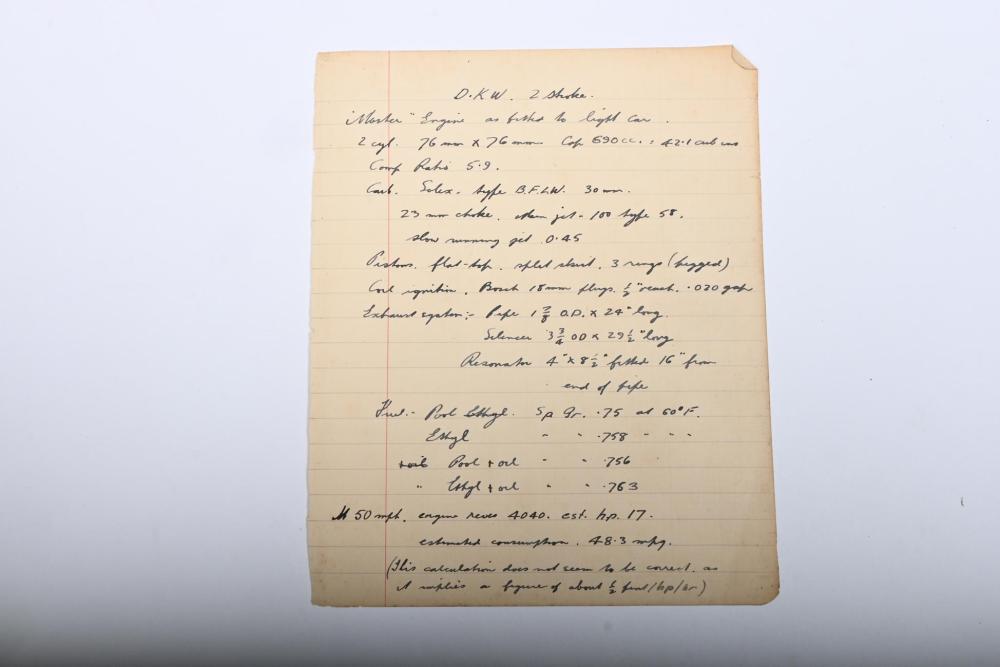 D.K.W. 2 Stroke.
"Master" Engine as fitted to light car.
2 cyl. 76 mm x 76 mm Cap 690cc. = 42.1 cub ins
Comp Ratio 5.9.
Carb. Solex. type B.F.L.W. 30 mm.
23 mm choke. main jet - 100 type 58.
slow running jet 0.45
Pistons. flat-top. split skirt. 3 rings (pegged)
Coil ignition. Bosch 18mm plugs. ½" reach. .020 gap
Exhaust system:- Pipe 1 ⅞ O.D. x 24" long.
Silencer 3¾ OD x 29½" long
Resonator 4" x 8½" fitted 16" from
end of pipe
Fuel:- Pool Ethyl. Sp Gr. .75 at 60°F.
Ethyl " " .758 " " "
+oil Pool + oil " " .756
" Ethyl + oil " " .763
At 50 mph. engine revs 4040. est. hp. 17.
estimated consumption. 48.3 mpg.
(This calculation does not seem to be correct. as
it implies a figure of about ½ pint/hp/hr)